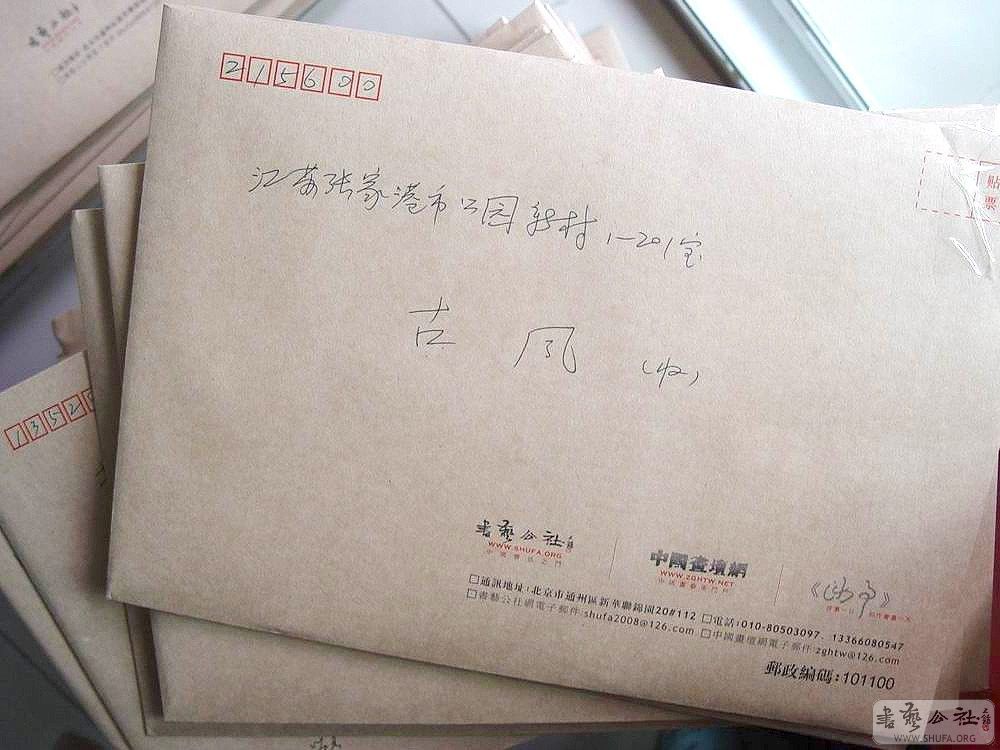 215600
贴
票
江苏张家港市公园新村1-201室
古风(收)
书艺公社
WWW.SHUFA.ORG
中國書法之門
中國畫壇網
WWW.ZGHTW.NET
□通訊地址:北京市通州區新華聯錦園20#112 □電話:010-80503097、13366080547
□書藝公社網電子郵件:shufa2008@126.com □中國畫壇網電子郵件:zghtw@126.com
郵政編碼:101100
1352
書藝公社
WWW.SHUFA.ORG